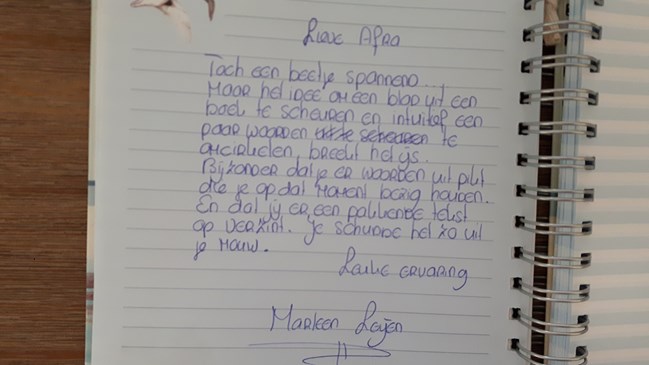 Lieve Afra
Toch een beetje spannend...
Maar het idee om een blad uit een
boek te scheuren en intuïtief een
paar woorden uit te scheuren te
omcirkelen, breekt het ijs.
Bijzonder dat je er woorden uit pikt
die je op dat moment bezig houden.
En dat jij er een pakkende tekst
op verzint. Je schudde het zo uit
je mouw.
Leuke ervaring
Marleen